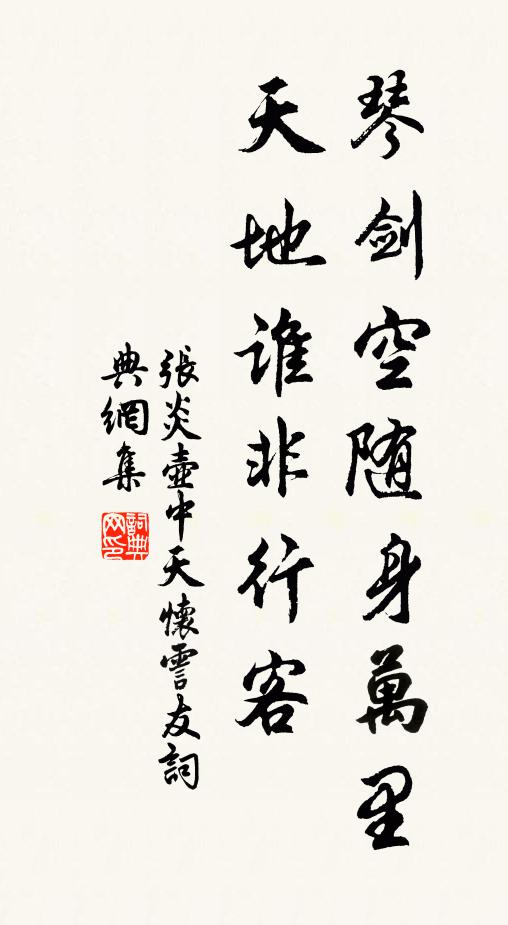 琴剑空随身萬里
天地誰非行客
張炎壷中天懷霅友詞
典網集
詞典
网印